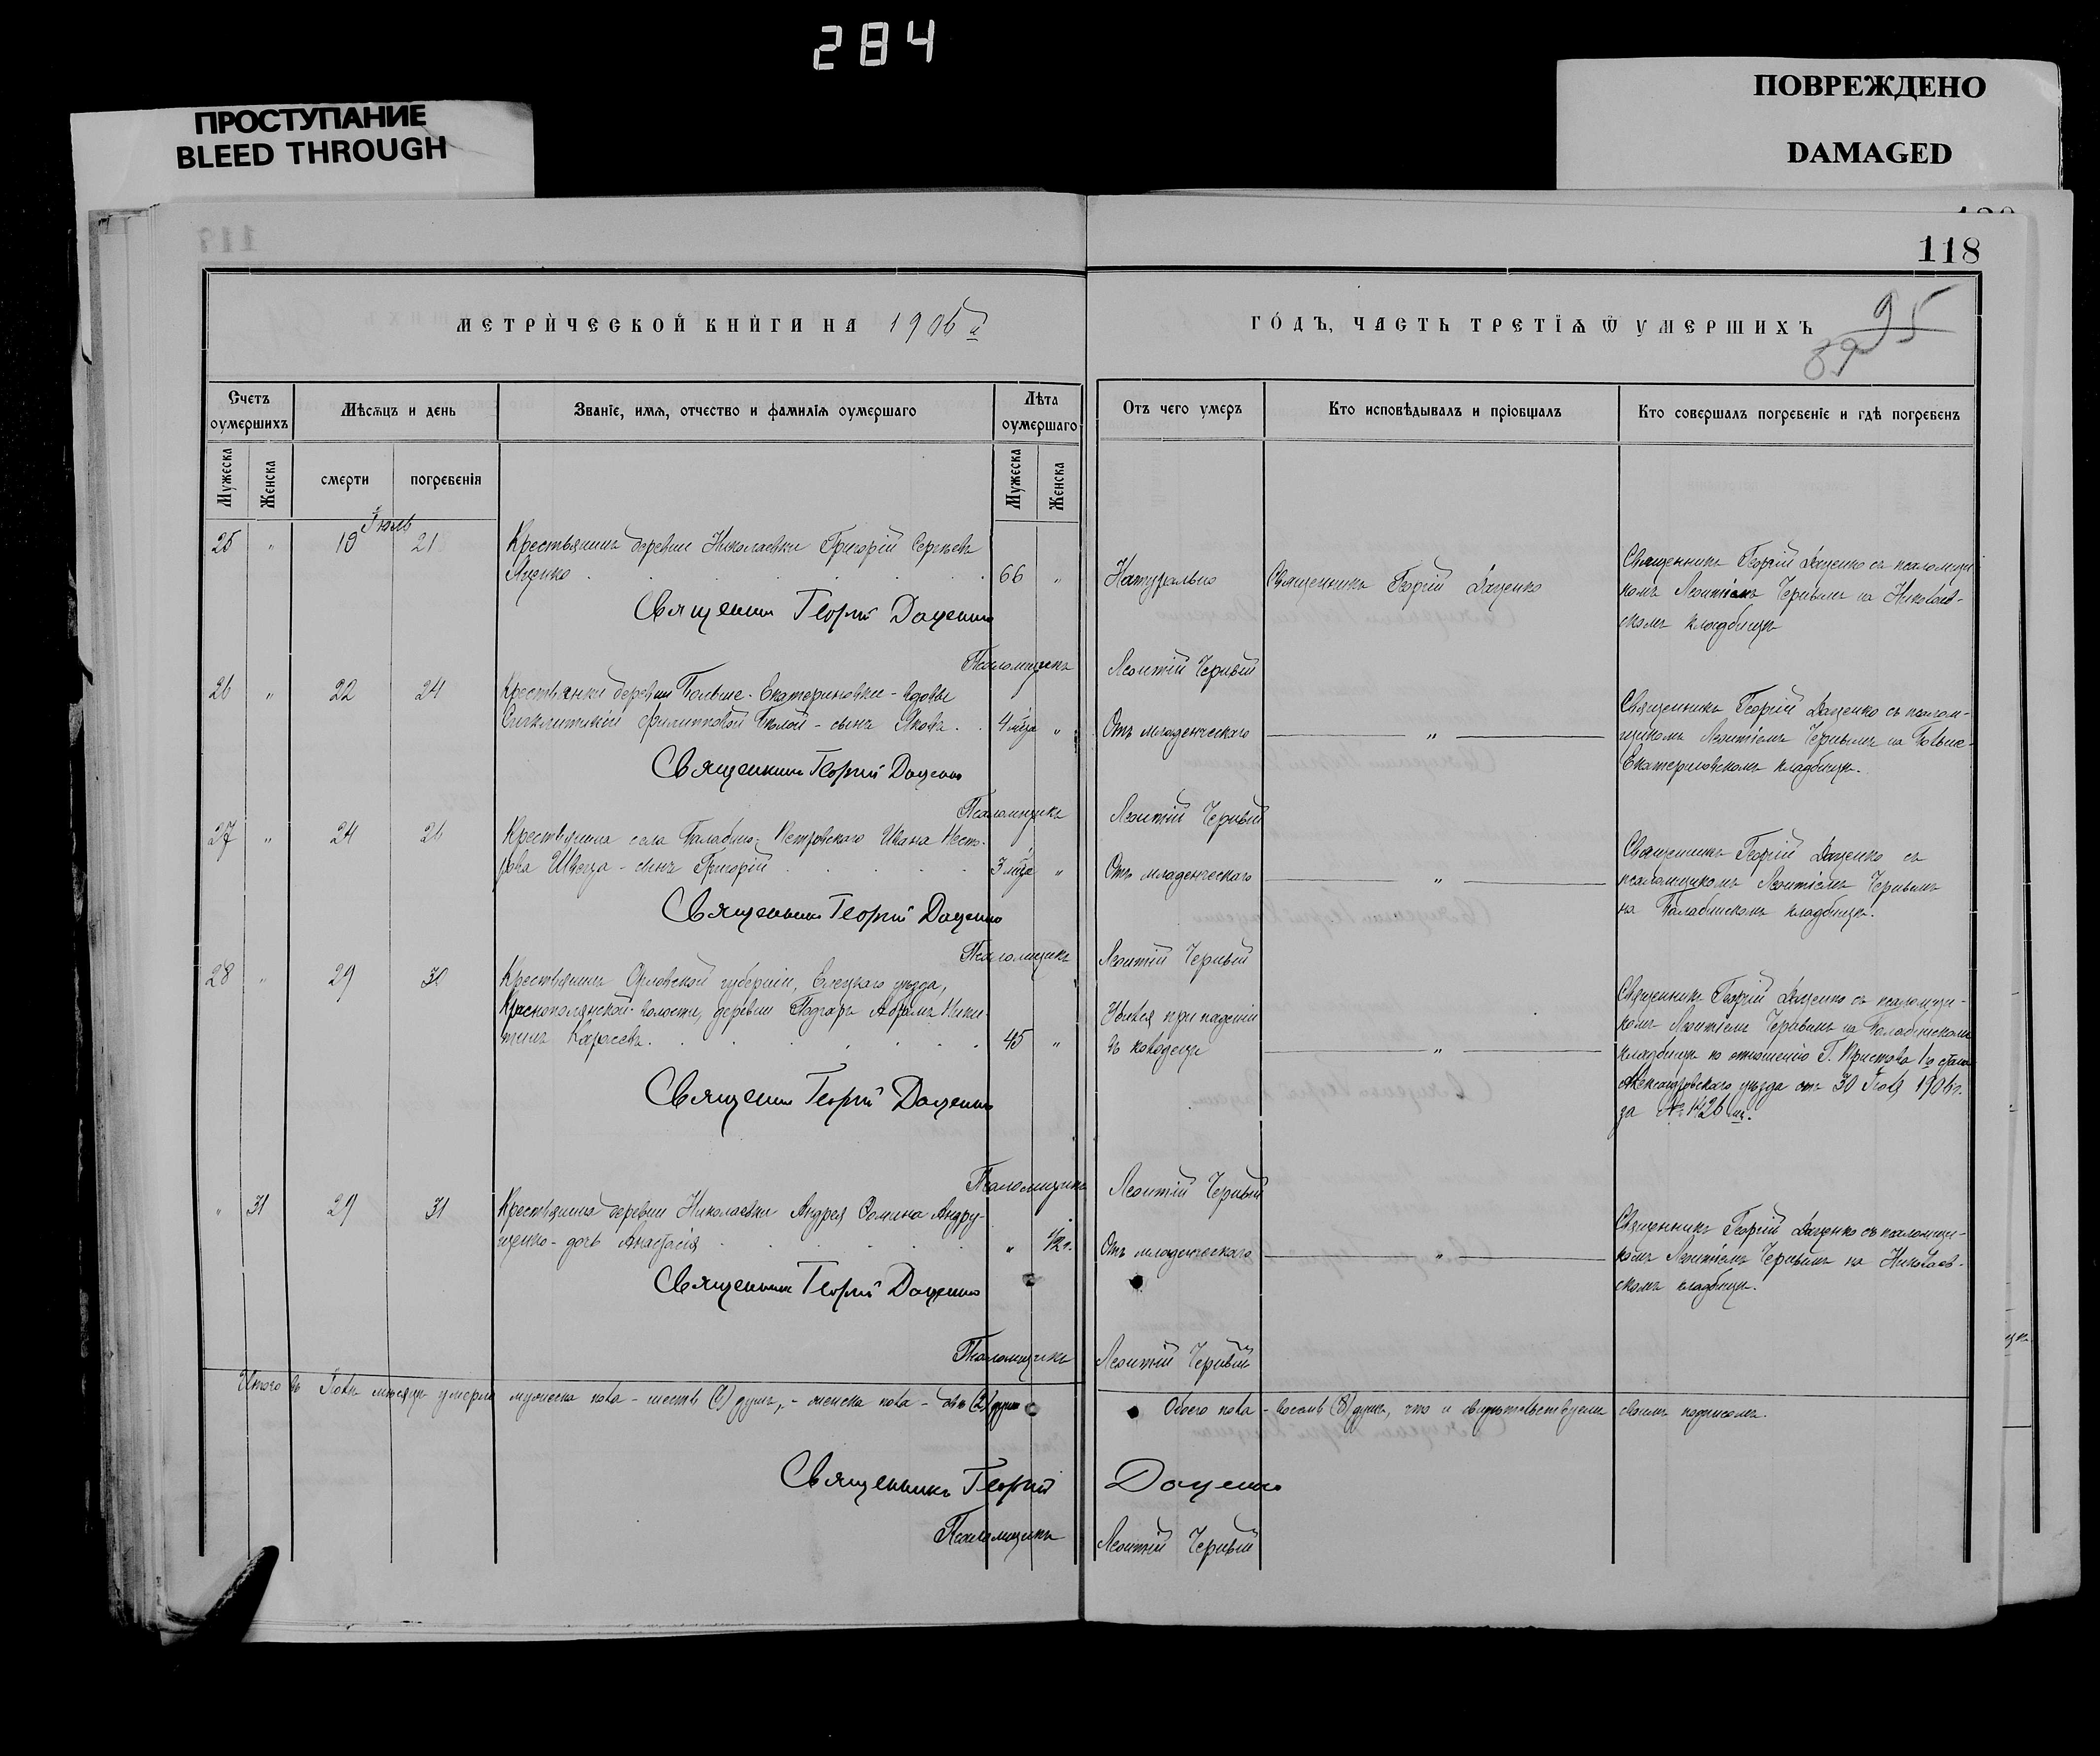 284
ПРОСТУПАНИЕ
BLEED THROUGH
ПОВРЕЖДЕНО
DAMAGED
118
МЕТРИЧЕСКОЙ КНИГИ НА 1906й
ГОДЪ, ЧАСТЬ ТРЕТІѦ Ѿ УМЕРШИХЪ
95
89
Счетъ оумершихъ
Мѣсѧцъ и день
Званіе, имѧ, отчество и фамиліѧ оумершаго
Лѣта оумершаго
Отъ чего умеръ
Кто исповѣдывалъ и пріобщалъ
Кто совершалъ погребеніе и гдѣ погребенъ
Мужеска
Женска
смерти
погребенія
Мужеска
Женска
Іюль
25 " 19 21 Крестьянинъ деревни Николаевки Григорій Сергѣевъ
Яценко 66 " Натурально Священникъ Георгій Даценко
Священникъ Георгій Даценко съ псаломщи-
комъ Леонтіемъ Чернымъ на Николаев-
скомъ кладбищѣ
Священникъ Георгій Даценко
Псаломщикъ Леонтій Черный
26 " 22 24 Крестьянки деревни Больше-Екатериновки - вдовы
Филипповой - сынъ Яковъ 4 мѣс. " Отъ младенческаго "
Священникъ Георгій Даценко съ псалом-
щикомъ Леонтіемъ Чернымъ на Больше-
Екатериновскомъ кладбищѣ.
Священникъ Георгій Даценко
Псаломщикъ Леонтій Черный
27 " 24 26 Крестьянина села Балабино-Петровскаго Ивана Несто-
рова Швеца - сынъ Григорій 3 мѣс. " Отъ младенческаго "
Священникъ Георгій Даценко съ
псаломщикомъ Леонтіемъ Чернымъ
на Балабинскомъ кладбищѣ.
Священникъ Георгій Даценко
Псаломщикъ Леонтій Черный
28 " 29 30 Крестьянинъ Орловской губерніи, Елецкаго уѣзда,
Краснополянской волости, деревни Авраамъ Ники-
тинъ Карасевъ. 45 " Убился при паденіи
въ колодецъ "
Священникъ Георгій Даценко съ псаломщи-
комъ Леонтіемъ Чернымъ на Балабинскомъ
кладбищѣ по отношенію Г. Пристава 1го стана
Александровскаго уѣзда отъ 30 Іюля 1906 г.
за № 1426 мъ.
Священникъ Георгій Даценко
Псаломщикъ Леонтій Черный
" 31 29 31 Крестьянина деревни Николаевки Андрея Ѳомина Андру-
щенко - дочь Анастасія " 1/2 г. Отъ младенческаго "
Священникъ Георгій Даценко съ псаломщи-
комъ Леонтіемъ Чернымъ на Николаев-
скомъ кладбищѣ.
Священникъ Георгій Даценко
Псаломщикъ Леонтій Черный
Итого въ Іюлѣ мѣсяцѣ умерло мужеска пола - шесть (6) душъ, - женска пола - двѣ (2) души
Обоего пола - восемь (8) душъ, что и свидѣтельствуемъ своимъ подписомъ.
Священникъ Георгій Даценко
Псаломщикъ Леонтій Черный